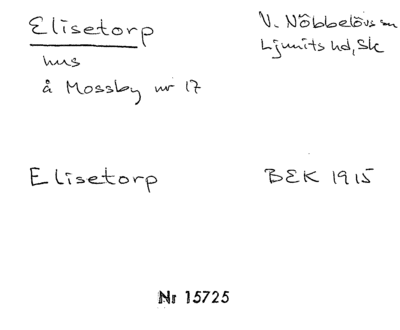 Elisetorp
V. Nöbbelövs sn
Ljunits hd, Sk
hus
å Mossby nr 17
Elisetorp
BEK 1915
Nr 15725